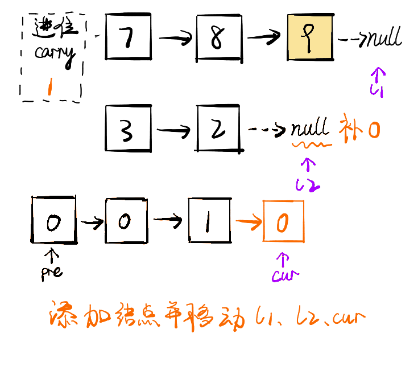 进位
carry
1
7 8 9 null
l1
3 2 null 补0
l2
0 0 1 0
pre cur
添加结点并移动 l1、l2、cur